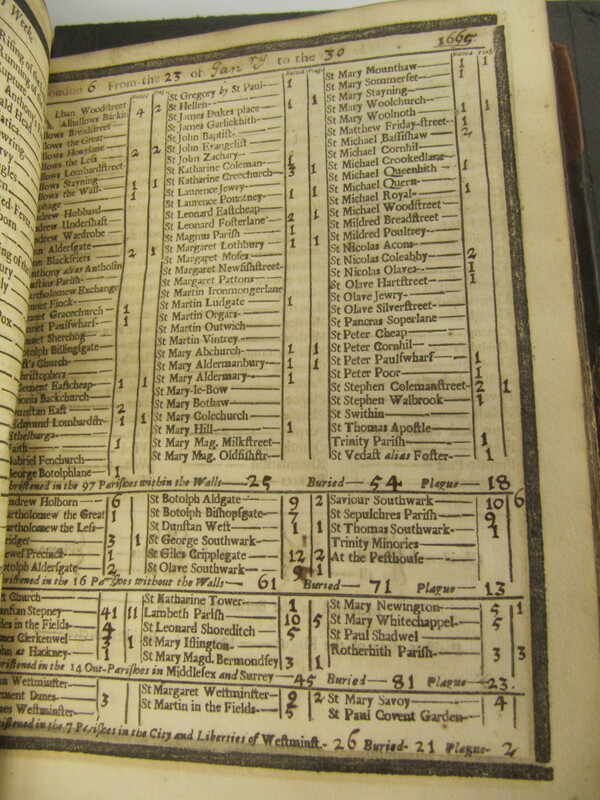 ondon 6 From the 23 of Jan ry to the 30 1665
Buried Plag. Buried Plag. Buried Plag.
Lban Woodstreet 4 2
Alhallows Barkin
llows Breadstreet
llows the Great
llows Honylane
llows the Less 2 2
llows Lombardstreet
llows Stayning 1 1
llows the Wall 1
phage
ndrew Hubbard
ndrew Undershaft
ndrew Wardrobe
nn Aldersgate
nn Blackfriers 2 1
nthony alias Antholin
stins Parish
artholomew Exchange
nnet Finck
nnet Gracechurch 1
nnet Paulswharf 1
nnet Sherehog
otolph Billingsgate
st's Church
hristophers
lement Eastcheap 1 1
ionis Backchurch
unstan East 2
Edmund Lombardstr 1 1
Ethelburga
aith 1
abriel Fenchurch
George Botolphlane 1
St Gregory by St Paul 1
St Hellen 1 1
St James Dukes place
St James Garlickhith
St John Baptist
St John Evangelist
St John Zachary
St Katharine Coleman 1
St Katharine Creechurch 3 1
St Laurence Jewry
St Laurence Pountney 1 1
St Leonard Eastcheap
St Leonard Fosterlane 2 1
St Magnus Parish 1
St Margaret Lothbury 1 1
St Margaret Moses
St Margaret Newfishstreet
St Margaret Pattons
St Martin Ironmongerlane
St Martin Ludgate 1
St Martin Orgars
St Martin Outwich
St Martin Vintrey
St Mary Abchurch 1 1
St Mary Aldermanbury 1 1
St Mary Aldermary 1
St Mary-le-Bow
St Mary Bothaw
St Mary Colechurch
St Mary Hill 1
St Mary Mag. Milkstreet
St Mary Mag. Oldfishstr
St Mary Mounthaw 1 1
St Mary Sommerset 1
St Mary Stayning
St Mary Woolchurch 1 1
St Mary Woolnoth
St Matthew Friday-street 1
St Michael Bassishaw 2
St Michael Cornhil
St Michael Crookedlane
St Michael Queenhith 1
St Michael Quern 1
St Michael Royal
St Michael Woodstreet
St Mildred Breadstreet
St Mildred Poultrey
St Nicolas Acons
St Nicolas Coleabby 2
St Nicolas Olaves 1
St Olave Hartstreet 1
St Olave Jewry
St Olave Silverstreet
St Pancras Soperlane
St Peter Cheap
St Peter Cornhil
St Peter Paulswharf 1
St Peter Poor 1
St Stephen Colemanstreet 2 1
St Stephen Walbrook 1
St Swithin
St Thomas Apostle
Trinity Parish 1
St Vedast alias Foster 1
ristened in the 97 Parishes within the Walls 25 Buried 54 Plague 18
ndrew Holborn 6
artholomew the Great 1
artholomew the Less
ridget 3 1
ewel Precinct 1
otolph Aldersgate 2
St Botolph Aldgate 9 2
St Botolph Bishopsgate 7
St Dunstan West 1
St George Southwark
St Giles Cripplegate 12 2
St Olave Southwark 9 1
Saviour Southwark 10 6
St Sepulchres Parish 9
St Thomas Southwark 1
Trinity Minories
At the Pesthouse
ristened in the 16 Parishes without the Walls 61 Buried 71 Plague 13
st Church
unstan Stepney 41 11
iles in the Fields 4
mes Clerkenwel 3 1
hn at Hackney 1
St Katharine Tower 1
Lambeth Parish 10 5
St Leonard Shoreditch 5
St Mary Islington
St Mary Magd. Bermondsey 3 1
St Mary Newington 5 1
St Mary Whitechappel 5
St Paul Shadwel
Rotherhith Parish 3 3
ristened in the 14 Out-Parishes in Middlesex and Surrey 45 Buried 81 Plague 23
nn Westminster
ement Danes 3
mes Westminster
St Margaret Westminster 9 2
St Martin in the Fields 5
St Mary Savoy 4
St Paul Covent Garden
ristened in the 7 Parishes in the City and Liberties of Westminst. 26 Buried 21 Plague 2